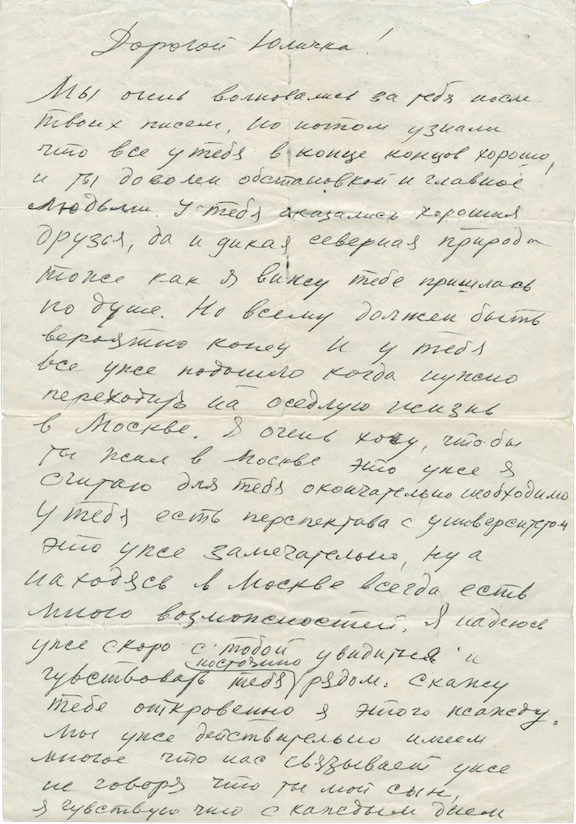 Дорогой Юличка!
Мы очень волновались за тебя после
твоих писем. Но потом узнали
что все у тебя в конце концов хорошо,
и ты доволен обстановкой и главное
людьми. У тебя оказались хорошия
друзья, да и дикая северная природа
тоже как я вижу тебе пришлась
по душе. Но всему должен быть
вероятно конец и у тебя
все уже подошло когда нужно
переходить на оседлую жизнь
в Москве. Я очень хочу, чтобы
ты жил в Москве это уже я
считаю для тебя окончательно необходимо
У тебя есть перспектава с университетом
это уже замечательно, ну а
находясь в Москве всегда есть
много возможностей. Я надеюсь
уже скоро с тобой увидиться и
чувствовать тебя постоянно рядом. Скажу
тебе откровенно я этого жажду.
Мы уже действительно имеем
многое что нас связывает уже
не говоря что ты мой сын,
я чувствую что с каждым днем